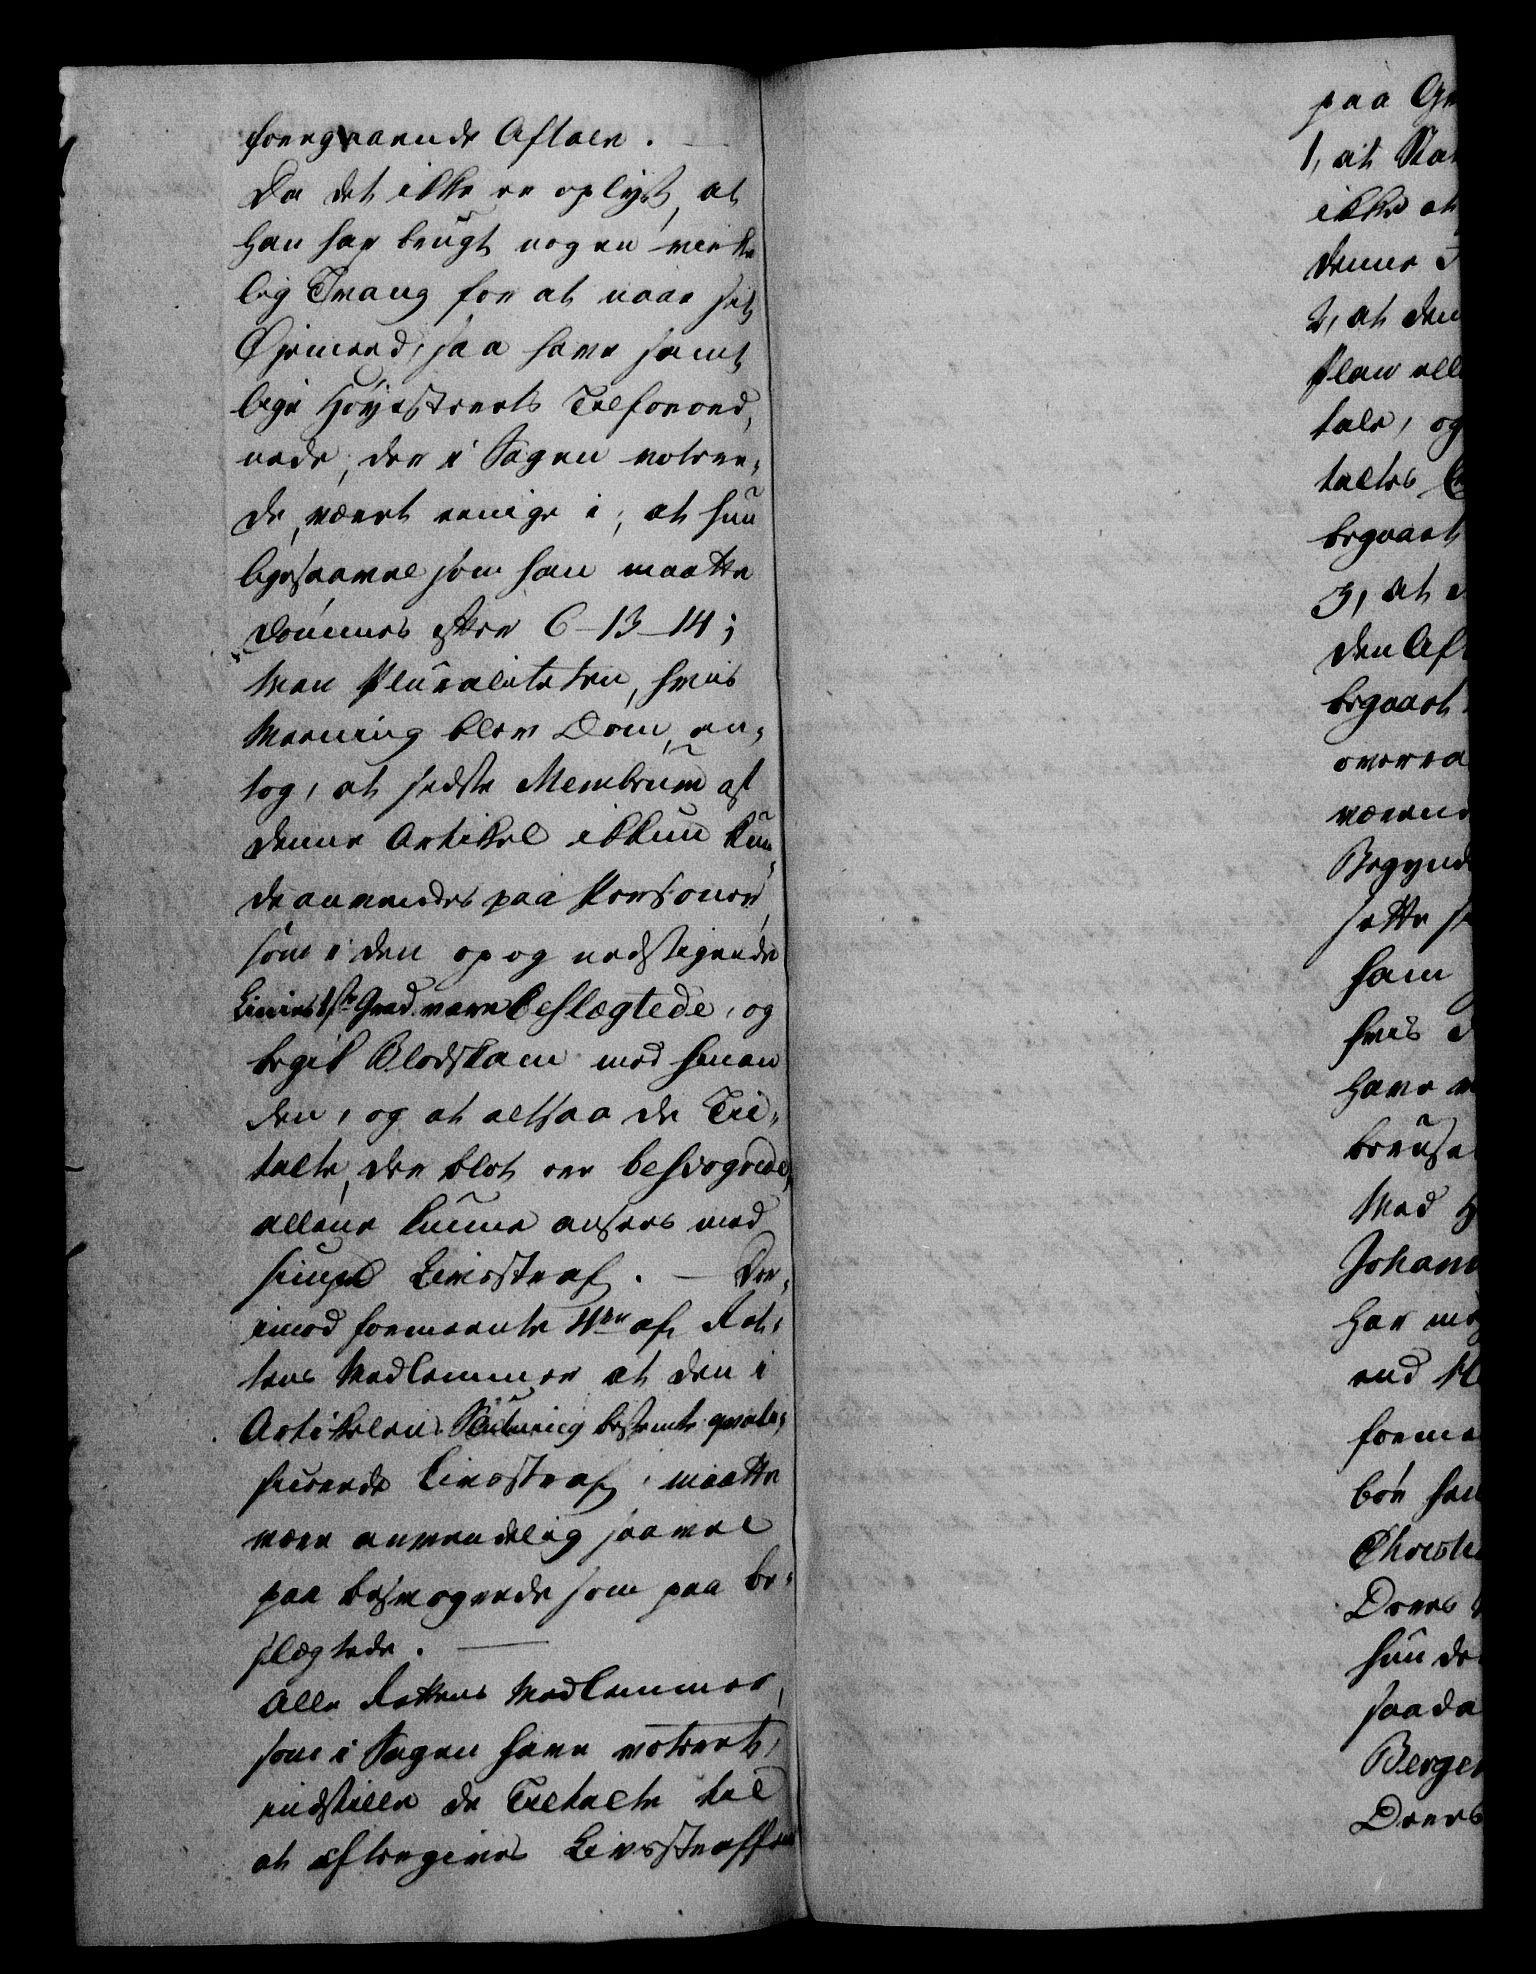 foregaaende Aftale. —
Da det ikke er oplyst, at
han har brugt nogen virke
lig Tvang for at naae sit
Øjemeed, saa have samt
lige Høyesterets Tilforord,
nede, der i Sagen votere,
de, været eenige i, at hun
ligesaavel som han maatte
dømmes efter 6-13-14;
Men Pluraliteten, hvis
Meening blev Dom, an,
tog, at sidste Membrum af
denne Artikel ikkun kun,
de anvendes paa Personer,
som i den op og nedstigende
Linies 1ste Grad vare beslægtede, og
begik Blodskam med hinan
den, og at altsaa de Til,
talte, der blot ere besvogrede,
alleene kunne ansees med
simpel Livsstraf. — Der,
imod formeente 4re af Ret,
tens Medlemmer at den i
Artikelens Slutning bestemte qvali,
ficerede Livsstraf, maatte
være anvendelig saavel
paa besvogrede som paa be,
slægtede. —
Alle Rettens Medlemmer,
som i Sagen have voteret,
indstille de Tiltalte til
at eftergives Livsstraffen
paa
1, at
ikke at
denne
2, at den
Plan
tale, og
taltes
begaaet
3, at
den
begaaet

sette
ham
hvis
have

Med
Har
end
bør
hun
saada
Berge